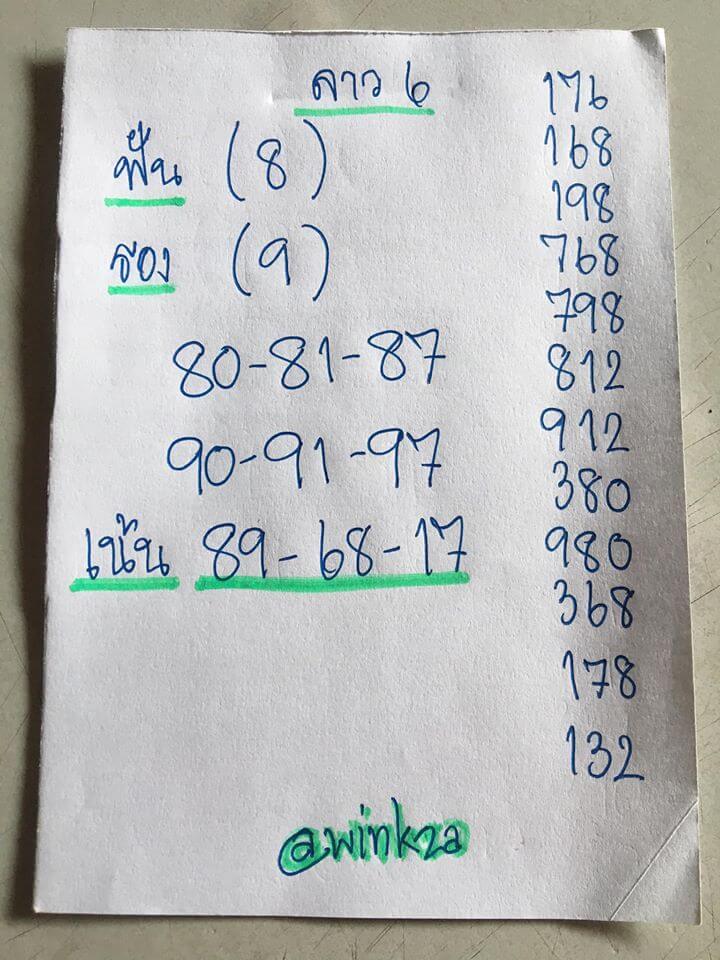 ลาว 6
ฟัน (8)
รอง (9)
80-81-87
90-91-97
เน้น 89-68-17
176
168
198
768
798
812
912
380
980
368
178
132
@winkza